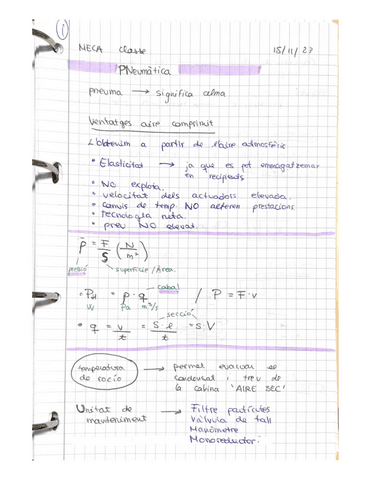 1
MECA Classe 15/11/23
PNeumàtica
pneuma → significa alma
Ventatges aire comprimit
L'obtenim a partir de l'aire admosfèric
• Elasticitat → ja que es pot emmagatzemar
en recipients
• NO explota.
• velocitat dels actuadors elevada.
• canvis de temp NO alteren prestacions
• Tecnologia neta.
• preu NO elevat.
P = F/S (N/m²)
pressió superfície/Àrea.
cabal
• Pot = p · q / P = F · v
W Pa m³/s
secció
• q = v/t = S·l/t = s·V
temperatura → permet evaluar es
de rocío condensat i treu de
la cabina 'AIRE SEC'
Unitat de → Filtre partícules
manteniment Vàlvula de tall
Manòmetre
Monoreductor